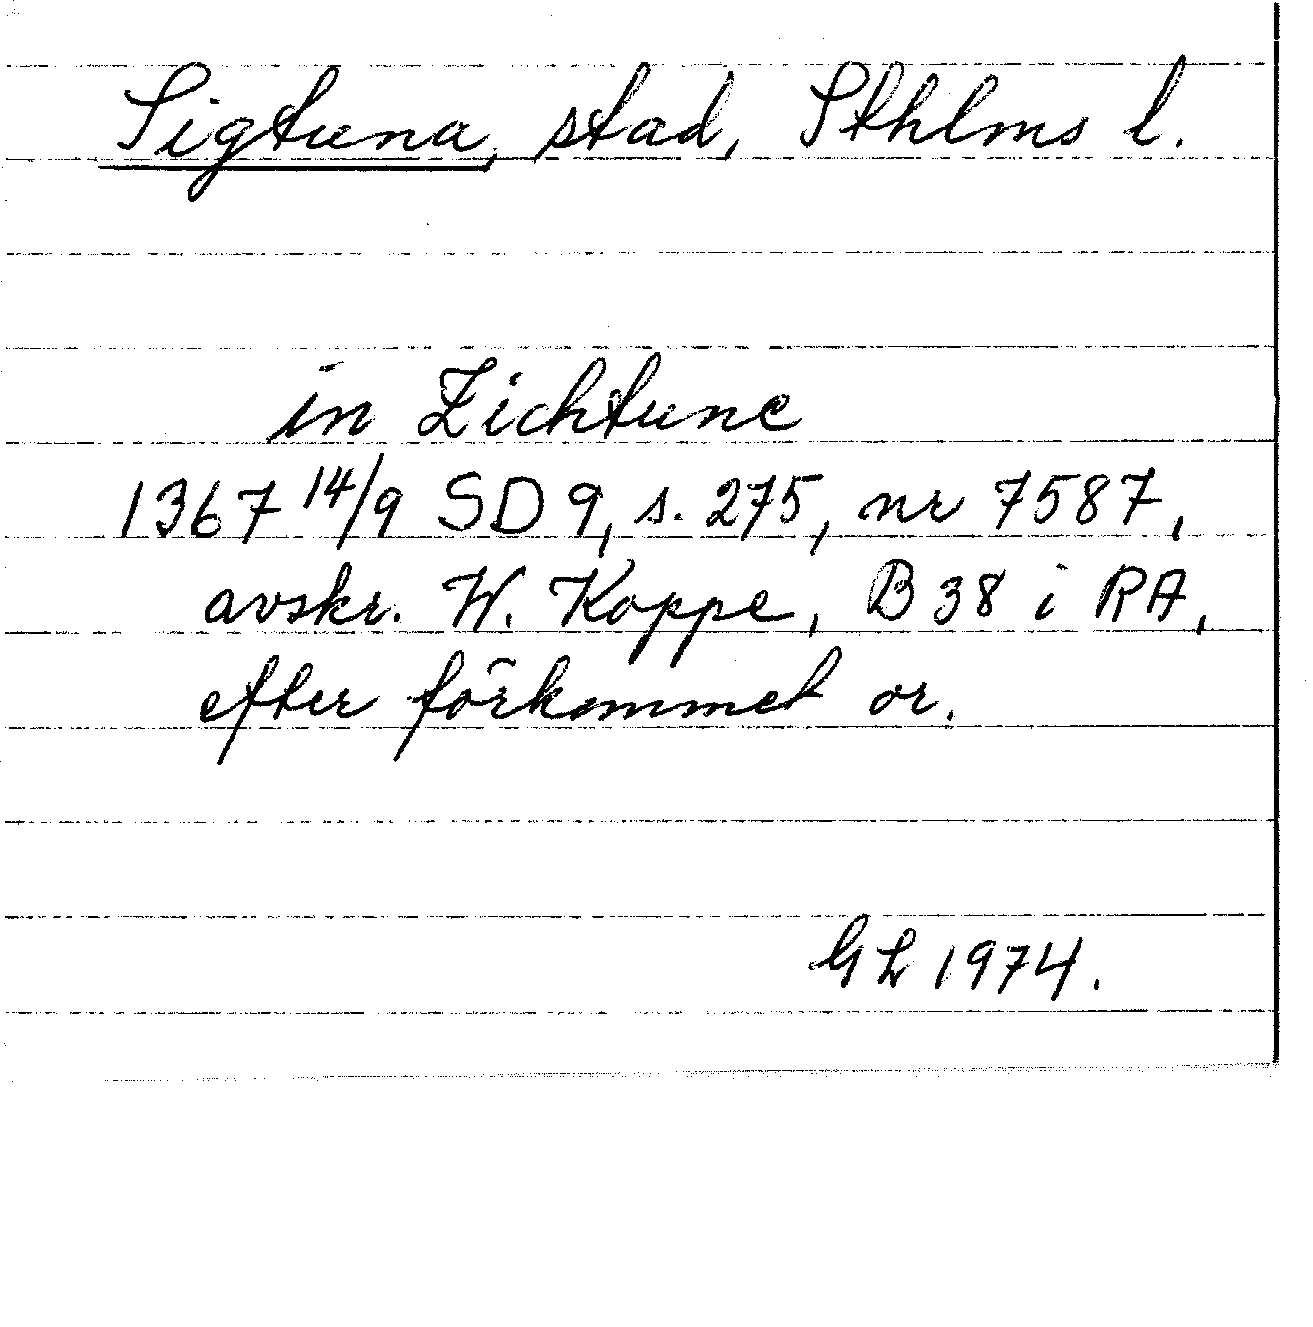 Sigtuna, stad, Sthlms l.
in Zichtune
1367 14/9 SD 9, s. 275, nr 7587,
avskr. W. Koppe, B 38 i RA,
efter förkommet or.
GL 1974.